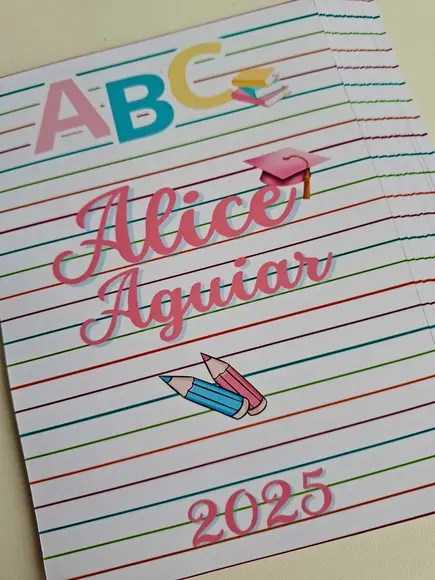 ABC
Alice
Aguiar
2025